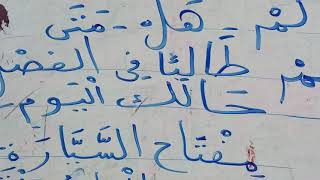 لَمْ - هَلْ - مَتَى
طَالِبًا في الفَصْل
حَالُكَ الْيَوْم
مِفْتَاح السَّيَّارَة